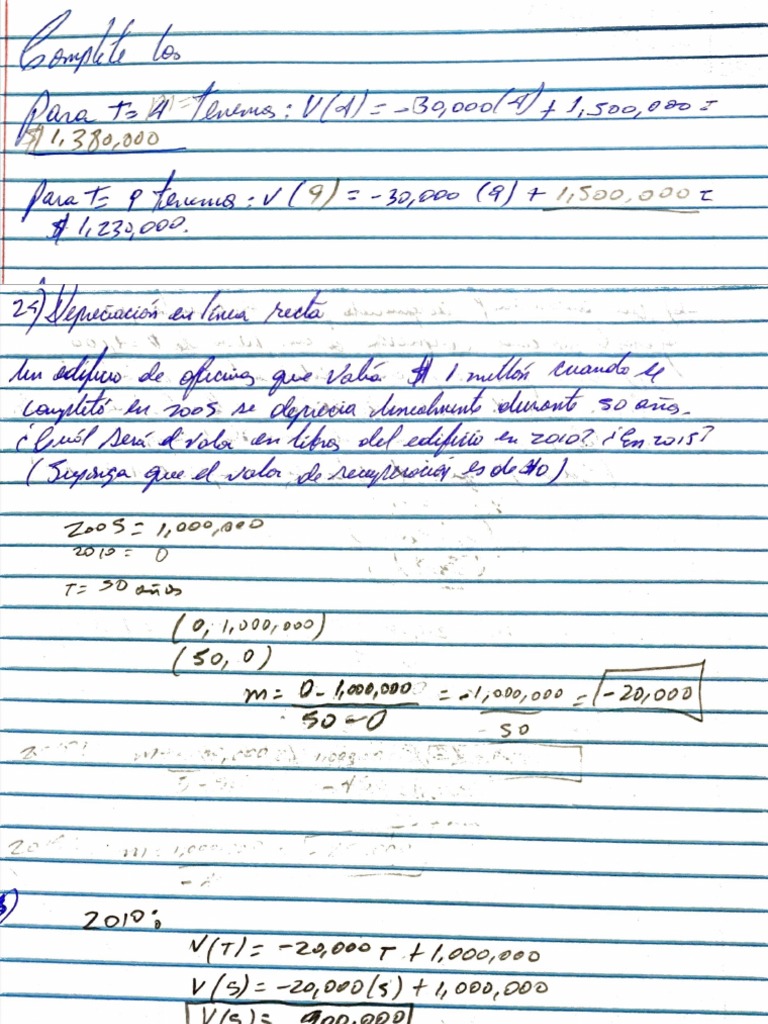 Complete los
Para T= 4 tenemos: V(4) = -30,000(4) + 1,500,000 =
$ 1,380,000
Para T= 9 tenemos: V(9) = -30,000 (9) + 1,500,000 =
$ 1,230,000.
Depreciación en línea recta
Un edificio de oficinas que valía $ 1 millón cuando se
completó en 2005 se deprecia linealmente durante 50 años.
¿Cuál será el valor en libros del edificio en 2010? ¿En 2015?
(Suponga que el valor de recuperación es de $0)
2005 = 1,000,000
2010 = 0
T= 50 años
(0, 1,000,000)
(50, 0)
m= 0 - 1,000,000 = -1,000,000 = -20,000
50 - 0 50
2010:
V(T) = -20,000 T + 1,000,000
V(5) = -20,000(5) + 1,000,000
V(5) = 900,000